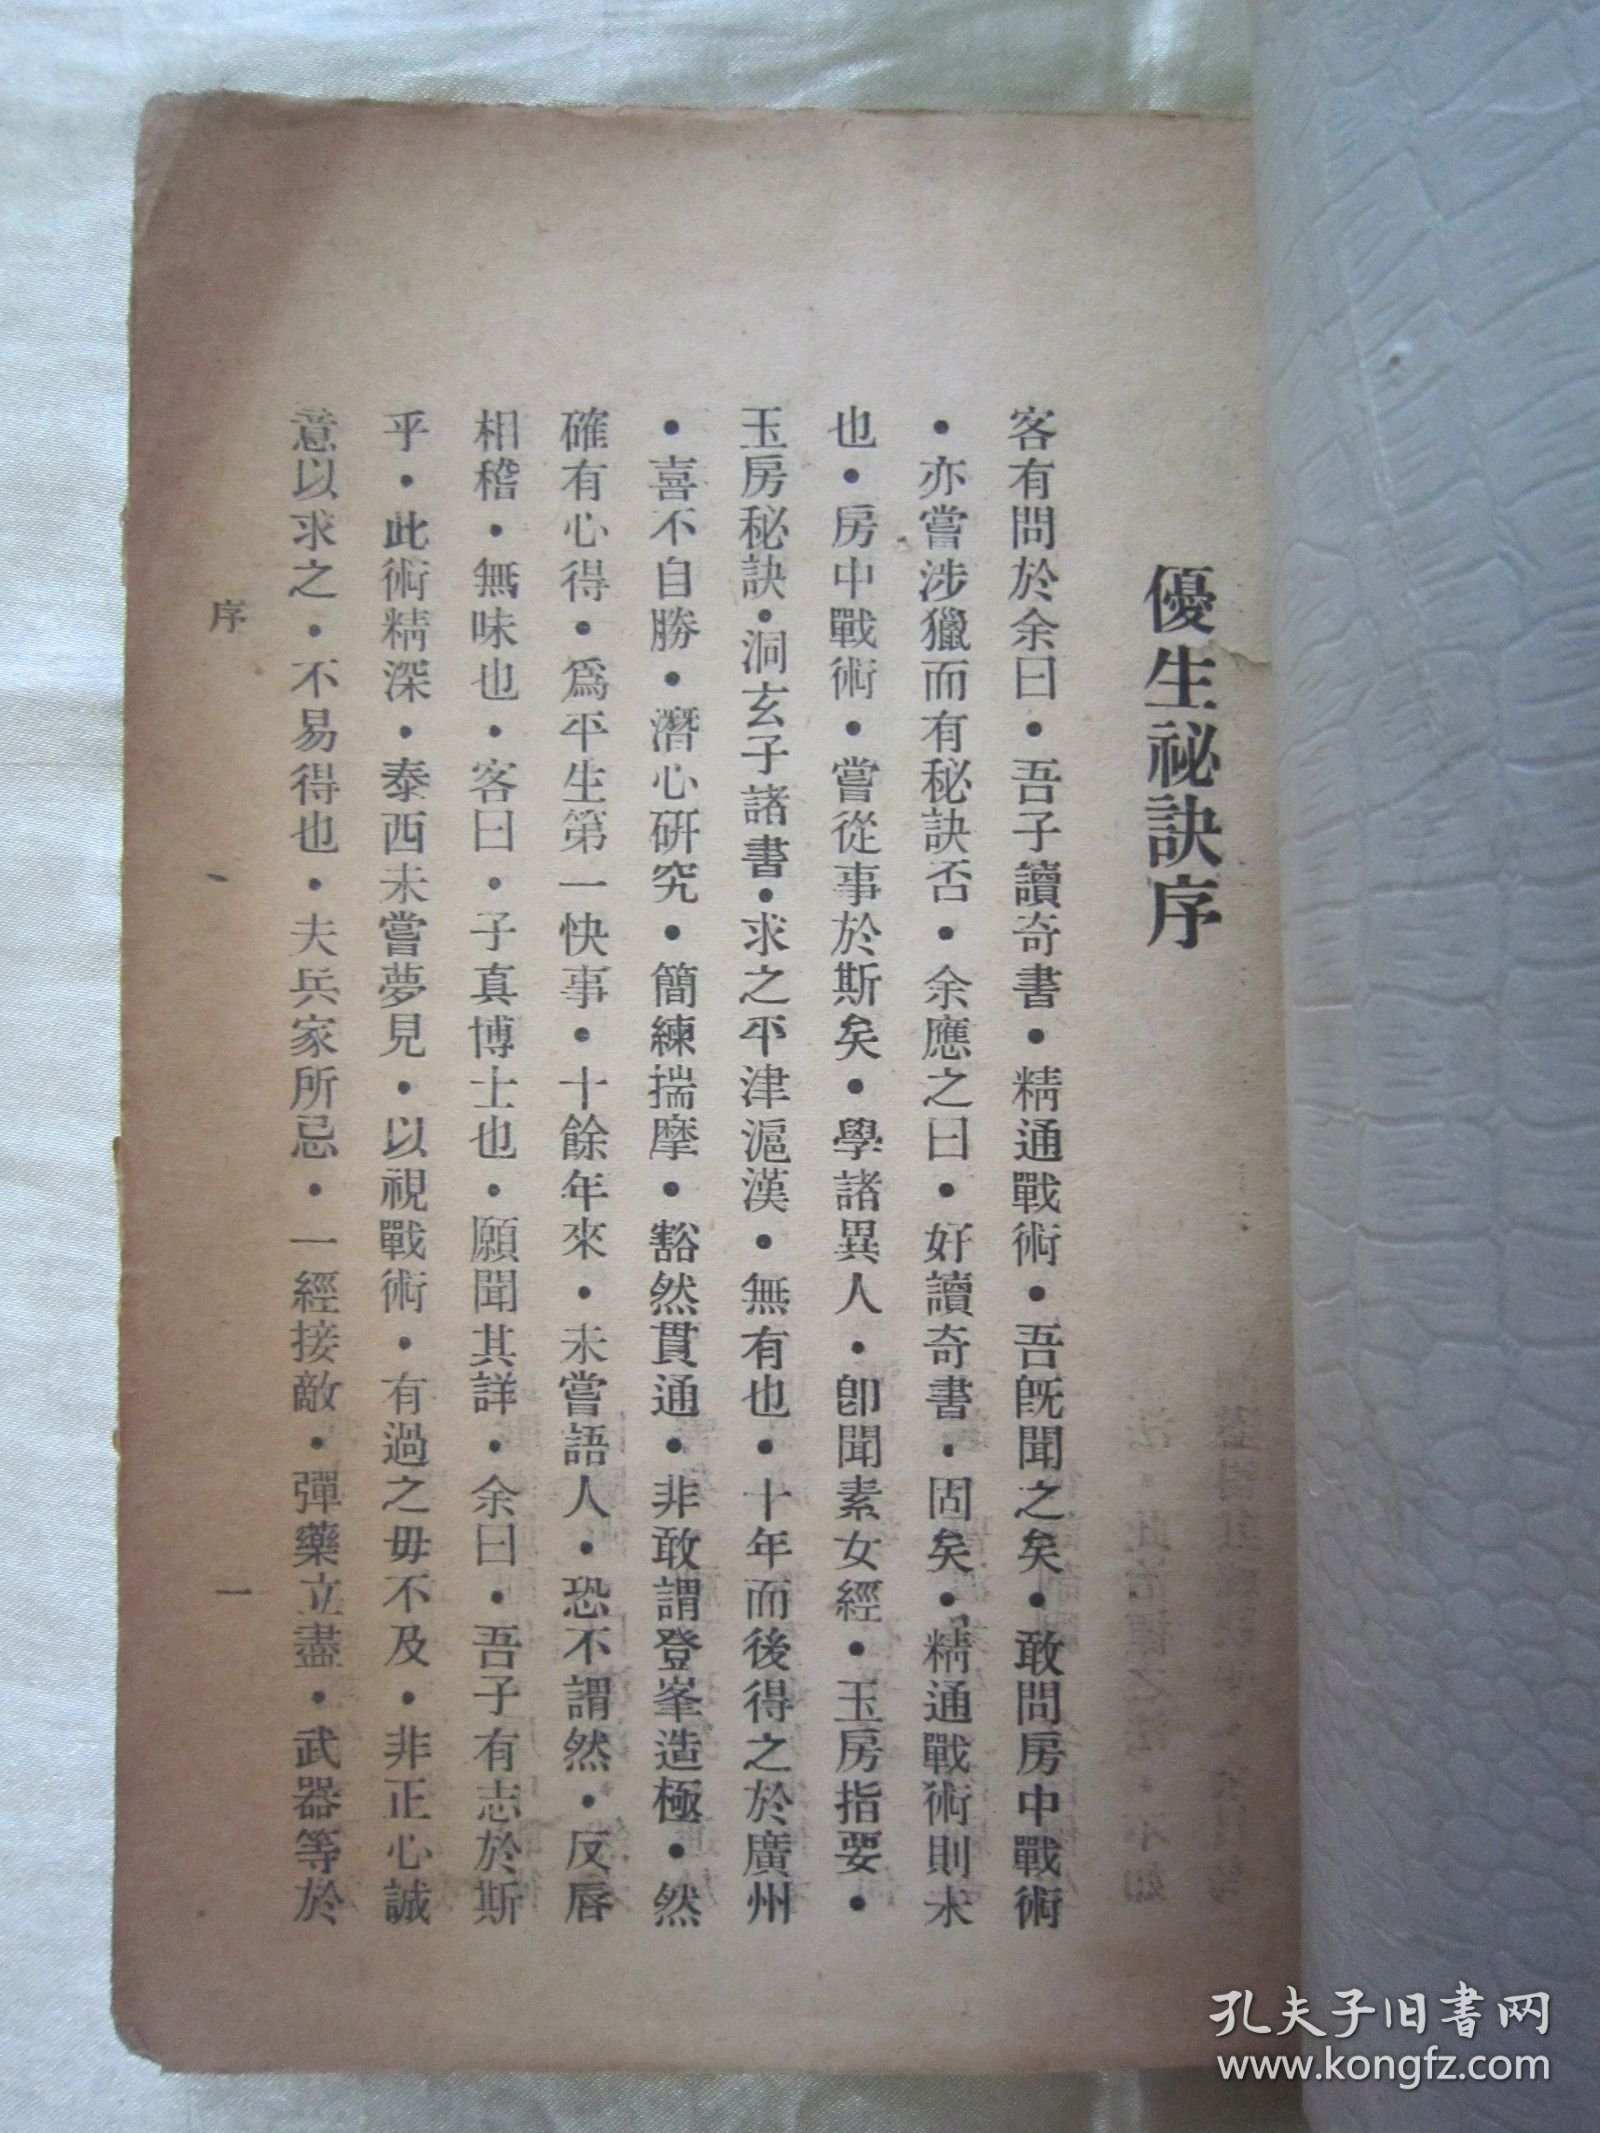 優生祕訣序
客有問於余曰・吾子讀奇書・精通戰術・吾旣聞之矣・敢問房中戰術
・亦嘗涉獵而有秘訣否・余應之曰・好讀奇書・固矣・精通戰術則未
也・房中戰術・嘗從事於斯矣・學諸異人・卽聞素女經・玉房指要・
玉房秘訣・洞玄子諸書・求之平津滬漢・無有也・十年而後得之於廣州
・喜不自勝・潛心研究・簡練揣摩・豁然貫通・非敢謂登峯造極・然
確有心得・爲平生第一快事・十餘年來・未嘗語人・恐不謂然・反唇
相稽・無味也・客曰・子真博士也・願聞其詳・余曰・吾子有志於斯
乎・此術精深・泰西未嘗夢見・以視戰術・有過之毋不及・非正心誠
意以求之・不易得也・夫兵家所忌・一經接敵・彈藥立盡・武器等於
序
一
孔夫子旧书网
www.kongfz.com